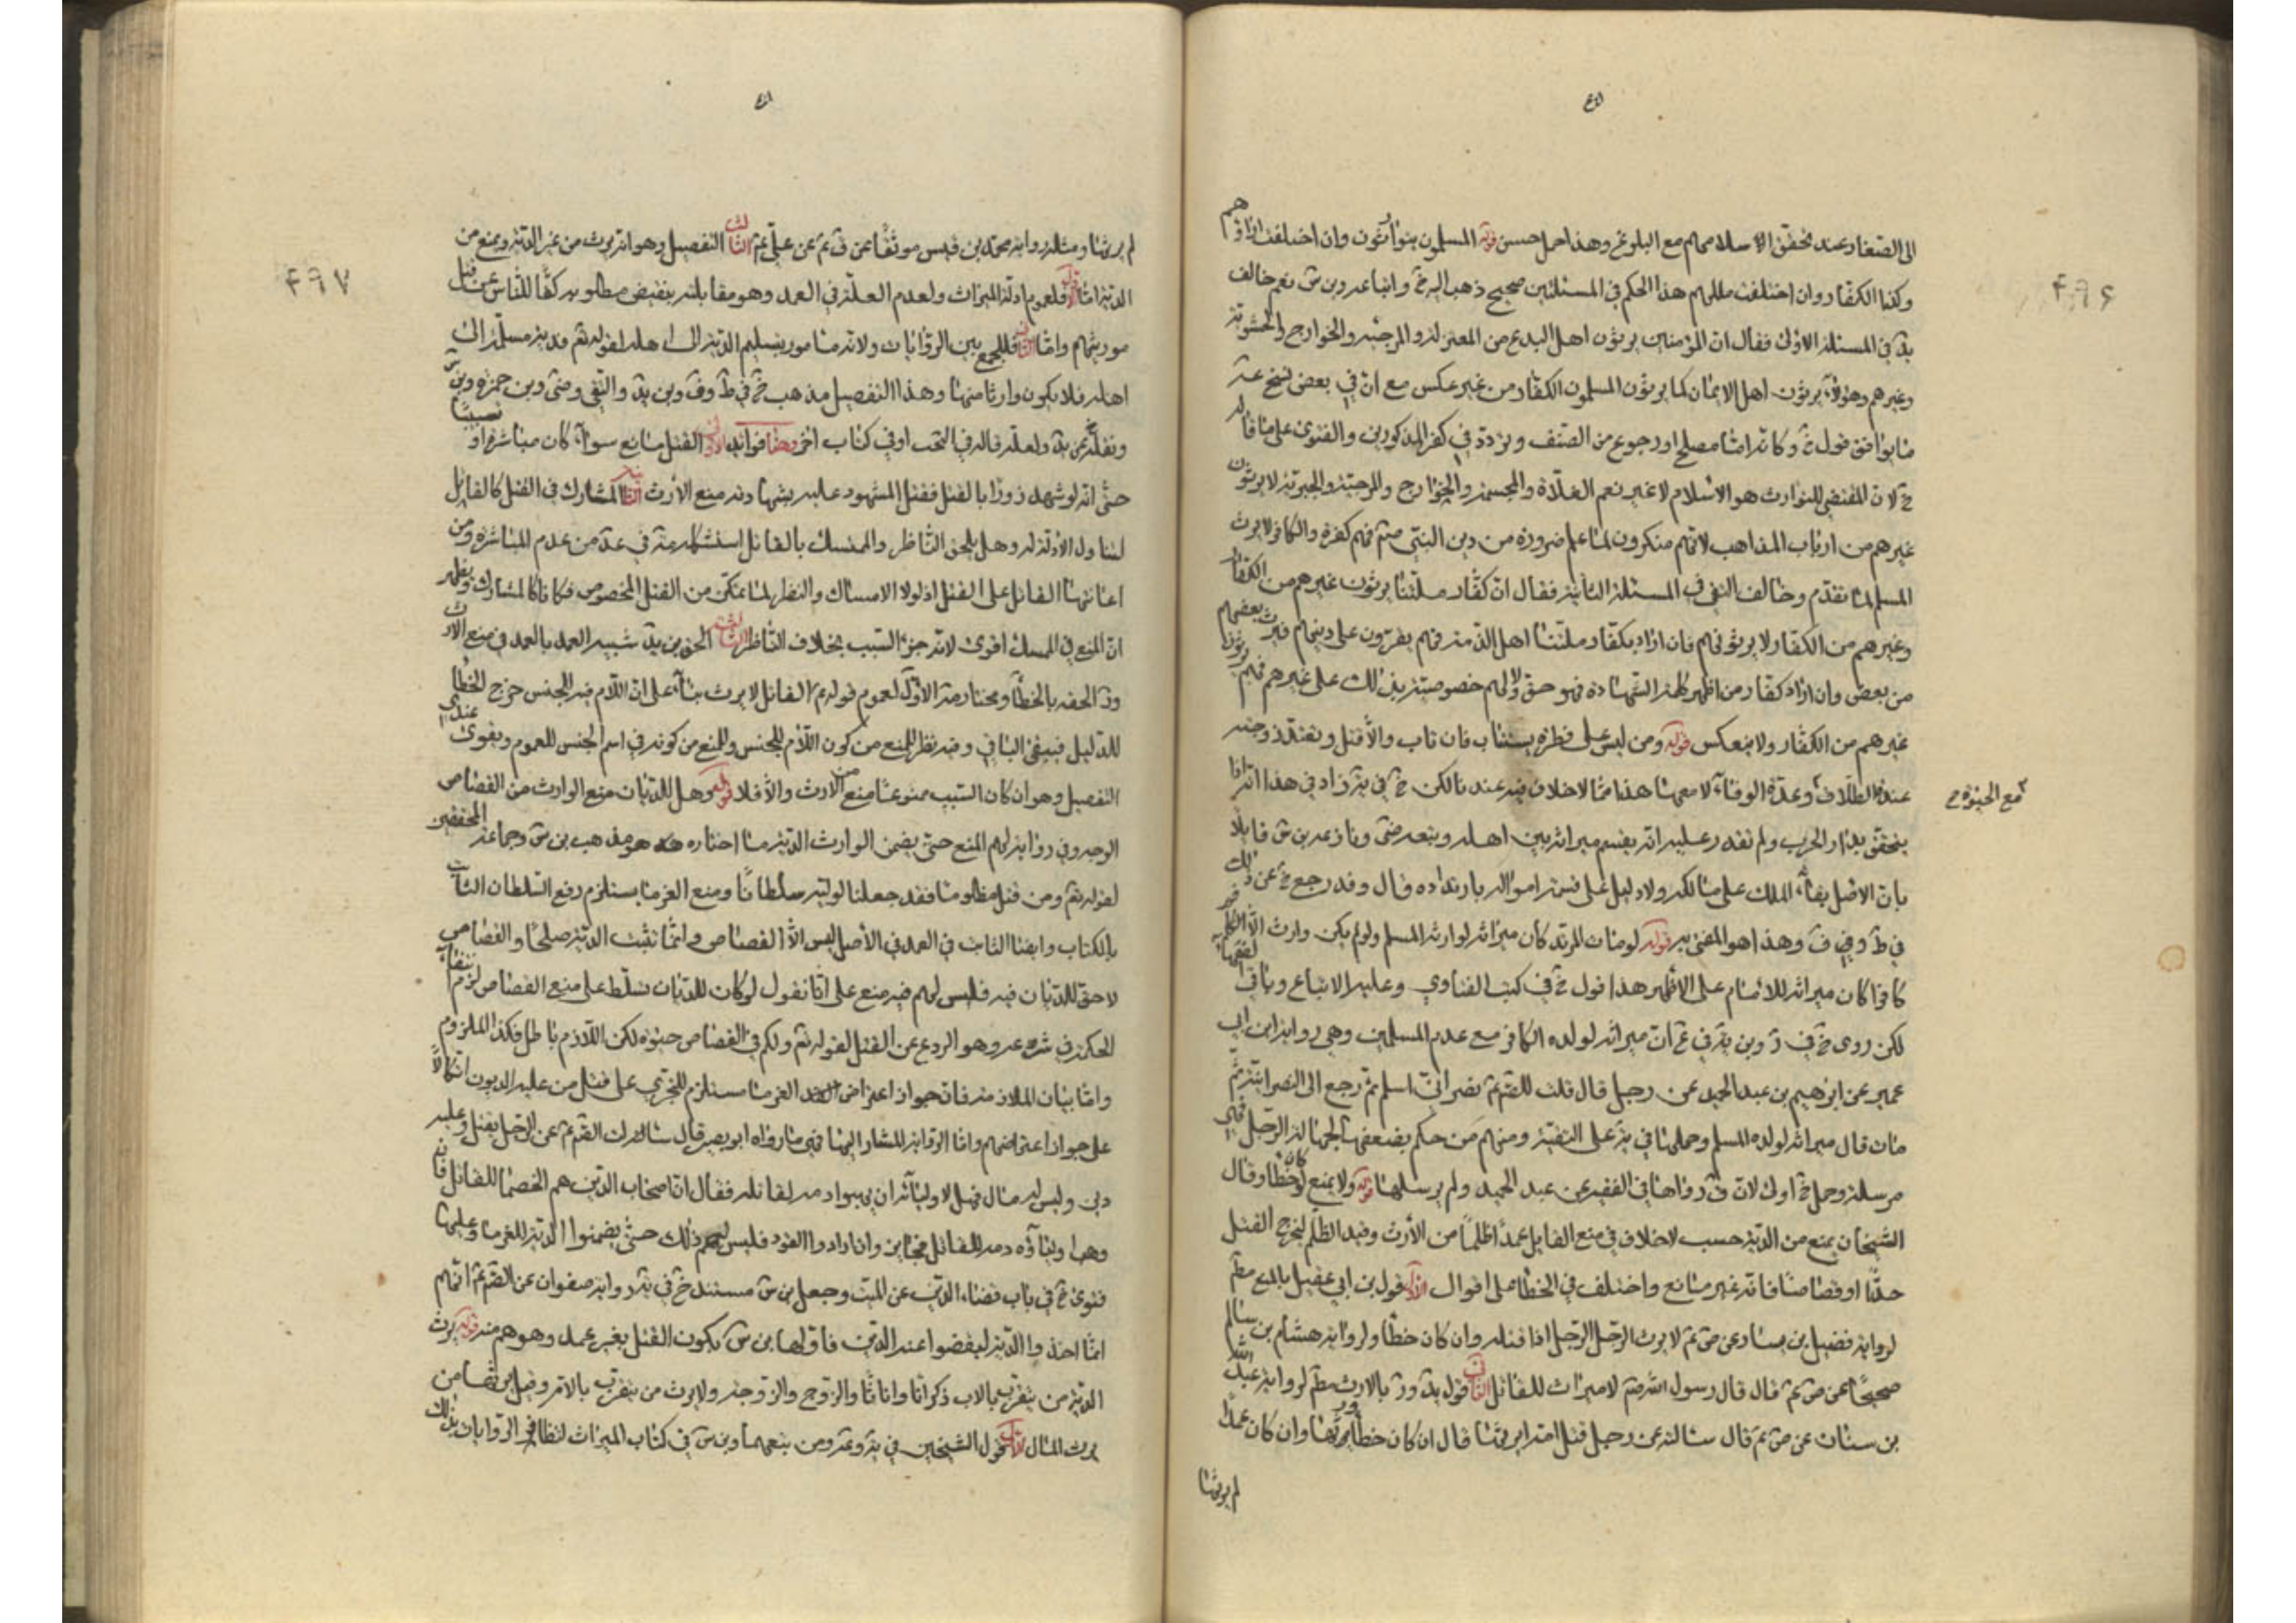 الى الصغار وعند تحقق الاسلام منهم مع البلوغ وهذا حمل حسن قوله المسلمون يتوارثون وان اختلفت اراؤهم
وكذا الكفار وان اختلفت مللهم هذا الحكم في المسئلتين صحيح ذهب اليه خ واتباعه وبن س نعم خالف
يد في المسئلة الاولى فقال ان المؤمنين يرثون اهل البدع من المعتزلة والمرجئة والخوارج والحشوية
وغيرهم وهؤلاء يرثون اهل الايمان كما يرثون المسلمون الكفار من غير عكس مع ان في بعض نسخ عة
ما يوافق قول خ وكانه اما مصلح او رجوع من المصنف وتردد في كفر المذكورين والفتوى على ما قاله
خ لان المقتضي للتوارث هو الاسلام لا غير نعم الغلاة والمجسمة والخوارج والمرجئة والجبرية لا يرثون
غيرهم من ارباب المذاهب لانهم منكرون لما علم ضرورة من دين النبي صم فهم كفرة والكافر لا يرث
المسلم لما تقدم وخالف التقي في المسئلة الثانية فقال ان كفار ملتنا يرثون غيرهم من الكفار
وغيرهم من الكفار لا يرثونهم فان اراد بكفار ملتنا اهل الذمة فهم يقرون على دينهم فيرث بعضهم
من بعض وان اراد كفار من اظهر كلمة الشهادة فهو حق ولا لهم خصوصية بذلك على غيرهم فهم يرثون
غيرهم من الكفار ولا ينعكس قوله ومن ليس على فطرة يستتاب فان تاب والا قتل وتعتد زوجته
عدة الطلاق وعدة الوفاة لا معها هذا مما لا خلاف فيه عندنا لكن خ في ية زاد في هذا انه اذا
مع الحيوة
يتحقق بدار الحرب ولم نقدر عليه انه يقسم ميراثه بين اهله وتبعه ضي ونازعه بن س قايلا
بان الاصل بقاء الملك على مالكه ولا دليل على قسمة امواله بارتداده قال وقد رجع خ عن ذلك
في ط وفي ف وهذا هو المفتى به قوله لو مات المرتد كان ميراثه لوارثه المسلم ولو لم يكن وارث الا
كافرا كان ميراثه للامام على الاظهر هذا قول خ في كتب الفتاوي وعليه الاتباع وباقي
لكن روى خ في ر وبن يه في ان ميراثه لولده الكافر مع عدم المسلمين وهي رواية ابن ابي
عمير عن ابرهيم بن عبد الحميد عن رجل قال قلت للصم عم نصراني اسلم ثم رجع الى النصرانية ثم
مات قال ميراثه لولده المسلم وحملها في ية على التقية ومنهم من حكم بضعفها لجهالة الرجل فهي
مرسلة وحمل خ اولى لان رواها في الفقيه عن عبد الحميد ولم يرسلها قوله ولا يمنع لو كان خطأ وقال
الشيخان يمنع من الدية حسب لا خلاف في منع القاتل عمدا ظلما من الارث وقيد الظلم ليخرج القتل
حدا او قصاصا فانه غير مانع واختلف في الخطا على اقوال الاول قول بن ابي عقيل بالمنع مطم
لرواية فضيل بن يسار عن ص عم لا يرث الرجل الرجل اذا قتله وان كان خطأ ولرواية هشام بن سالم
صحيحا عن ص عم قال قال رسول الله صم لا ميراث للقاتل الثاني قول يد ور بالارث مطم لرواية عبد الله
بن سنان عن ص عم قال سالته عن رجل قتل امه ايرثها قال ان كان خطأ ورثها وان كان عمدا
لم يرثها
لم يرثها ومثله رواية محمد بن قيس موثقا عن ق عم عن علي عم الثالث التفصيل وهو انه يرث من غير الدية ويمنع من
الدية اما الاول فلعموم ادلة الميراث ولعدم العلة في العمد وهو مقابلته بنقيض مطلوبه كفا للناس عن قتل
مورثيهم واما الثاني فللجمع بين الروايات ولانه مامور بتسليم الدية الى اهله لقوله تم فدية مسلمة الى
اهله فلا يكون وارثا منها وهذا التفصيل مذهب خ في ط وف وبن يد والتقي وضي وبن حمزة وبن س
ونقله عن يد ولعله قاله في التحب او في كتاب اخر وهنا فوائد الاولى القتل مانع سواء كان مباشرة او تسبيبا
حتى انه لو شهد زورا بالقتل فقتل المشهود عليه بشهادته منع الارث الثانية المشارك في القتل كالقاتل
لتناول الادلة له وهل يلحق الناظر والممسك بالقاتل استشكله عة في عد من عدم المباشرة ومن
اعانتها القاتل على القتل اذ لولا الامساك والنظر لما تمكن من القتل المخصوص فكانا كالمشارك ويظهر
ان المنع في الممسك اقوى لانه جزء السبب بخلاف الناظر الثالثة الحق بن يد شبيه العمد بالعمد في منع الارث
ور الحقه بالخطأ ومختار مة الاول لعموم قوله عم القاتل لا يرث بناء على ان اللام فيه للجنس خرج الخطأ
للدليل فيبقى الباقي وفيه نظر للمنع من كون اللام للجنس وللمنع من كونه في اسم الجنس للعموم ويقوى عندي
التفصيل وهو ان كان السبب ممنوعا منع من الارث والا فلا قوله وهل للديان منع الوارث من القصاص
الوجه وفي رواية لهم المنع حتى يضمن الوارث الدية ما اختاره هو مذهب بن س وجماعة المحققين
لقوله تم ومن قتل مظلوما فقد جعلنا لوليه سلطانا ومنع الغرما يستلزم رفع السلطان الثابت
بالكتاب وايضا الثابت في العمد في الاصل ليس الا القصاص وانما تثبت الدية صلحا والقصاص
لا حق للديان فيه فليس لهم فيه منع على انا نقول لو كان للديان تسلط على منع القصاص لزم انتفاء
الحكمة في شرعه وهو الردع عن القتل لقوله تم ولكم في القصاص حيوة لكن اللازم باطل فكذا الملزوم
واما بيان الملازمة فان جواز اعتراض الغرما مستلزم للتجري على قتل من عليه الديون اتكالا
على جواز اعتراضهم واما الرواية المشار اليها فهي ما رواه ابو بصير قال سالت الصم عم عن الرجل يقتل وعليه
دين وليس له مال فهل لاوليائه ان يهبوا دمه لقاتله فقال ان اصحاب الدين هم الخصما للقاتل فان
وهبوا اولياؤه دمه للقاتل فجايز وان ارادوا القود فليس لهم ذلك حتى يضمنوا الدية للغرما وعليها
فتوى خ في باب قضاء الدين عن الميت وجعل بن س مستند خ في ية رواية صفوان عن الصم عم انهم
انما اخذوا الدية ليقضوا عنه الدين فاولها بن س بكون القتل بغير عمد وهو وهم منه قوله يرث
الدية من يتقرب بالاب ذكرانا واناثا والزوج والزوجة ولا يرث من يتقرب بالام وقيل يرثها من
يرث المال الاول قول الشيخين في ية وعة ومن يتبعهما وبن س في كتاب الميراث لتظافر الروايات بذلك